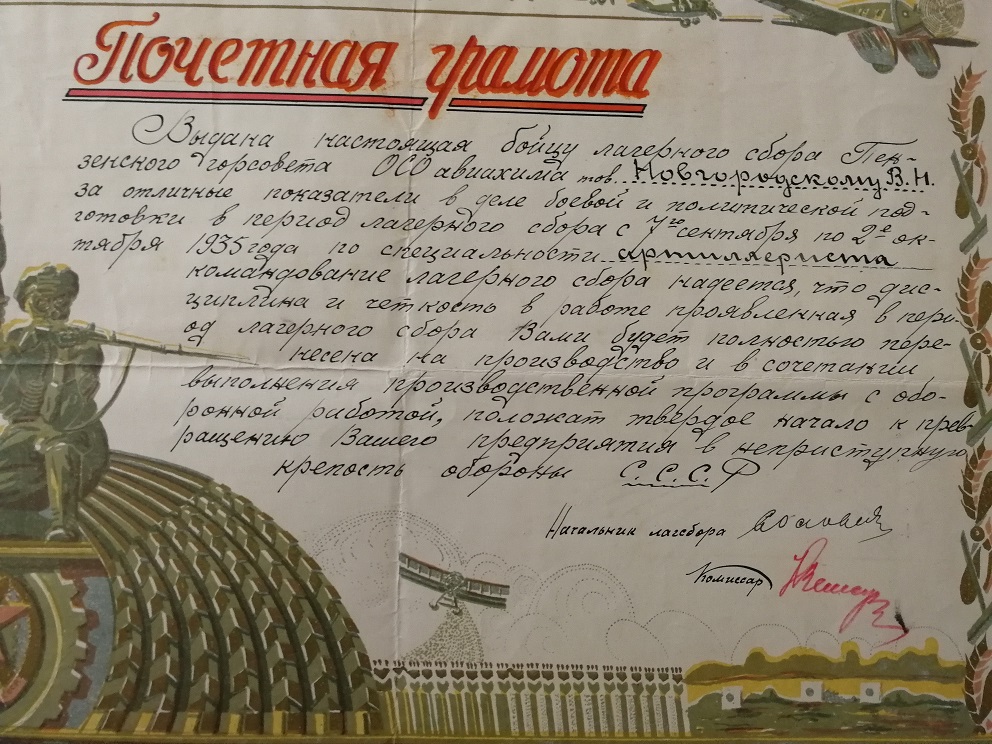 Почетная грамота
Выдана настоящая бойцу лагерного сбора Пен-
зенского горсовета ОСОавиахима тов. Новгородскому В.Н.
за отличные показатели в деле боевой и политической под-
готовки в период лагерного сбора с 7го сентября по 2е ок-
тября 1935 года по специальности артиллериста
командование лагерного сбора надеется, что дис-
циплина и четкость в работе проявленная в пери-
од лагерного сбора Вами будет полностью пере-
несена на производство и в сочетании
выполнения производственной программы с обо-
ронной работой, положат твердое начало к прев-
ращению Вашего предприятия в неприступную
крепость обороны С.С.С.Р
Начальник лагсбора
Комиссар